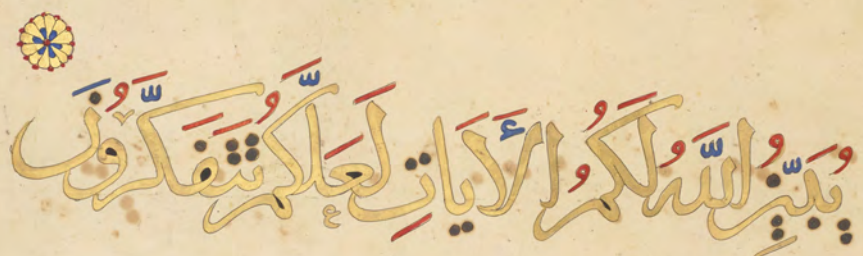 يُبَيِّنُ اللَّهُ لَكُمُ الْأَيَاتِ لَعَلَّكُمْ تَتَفَكَّرُونَ